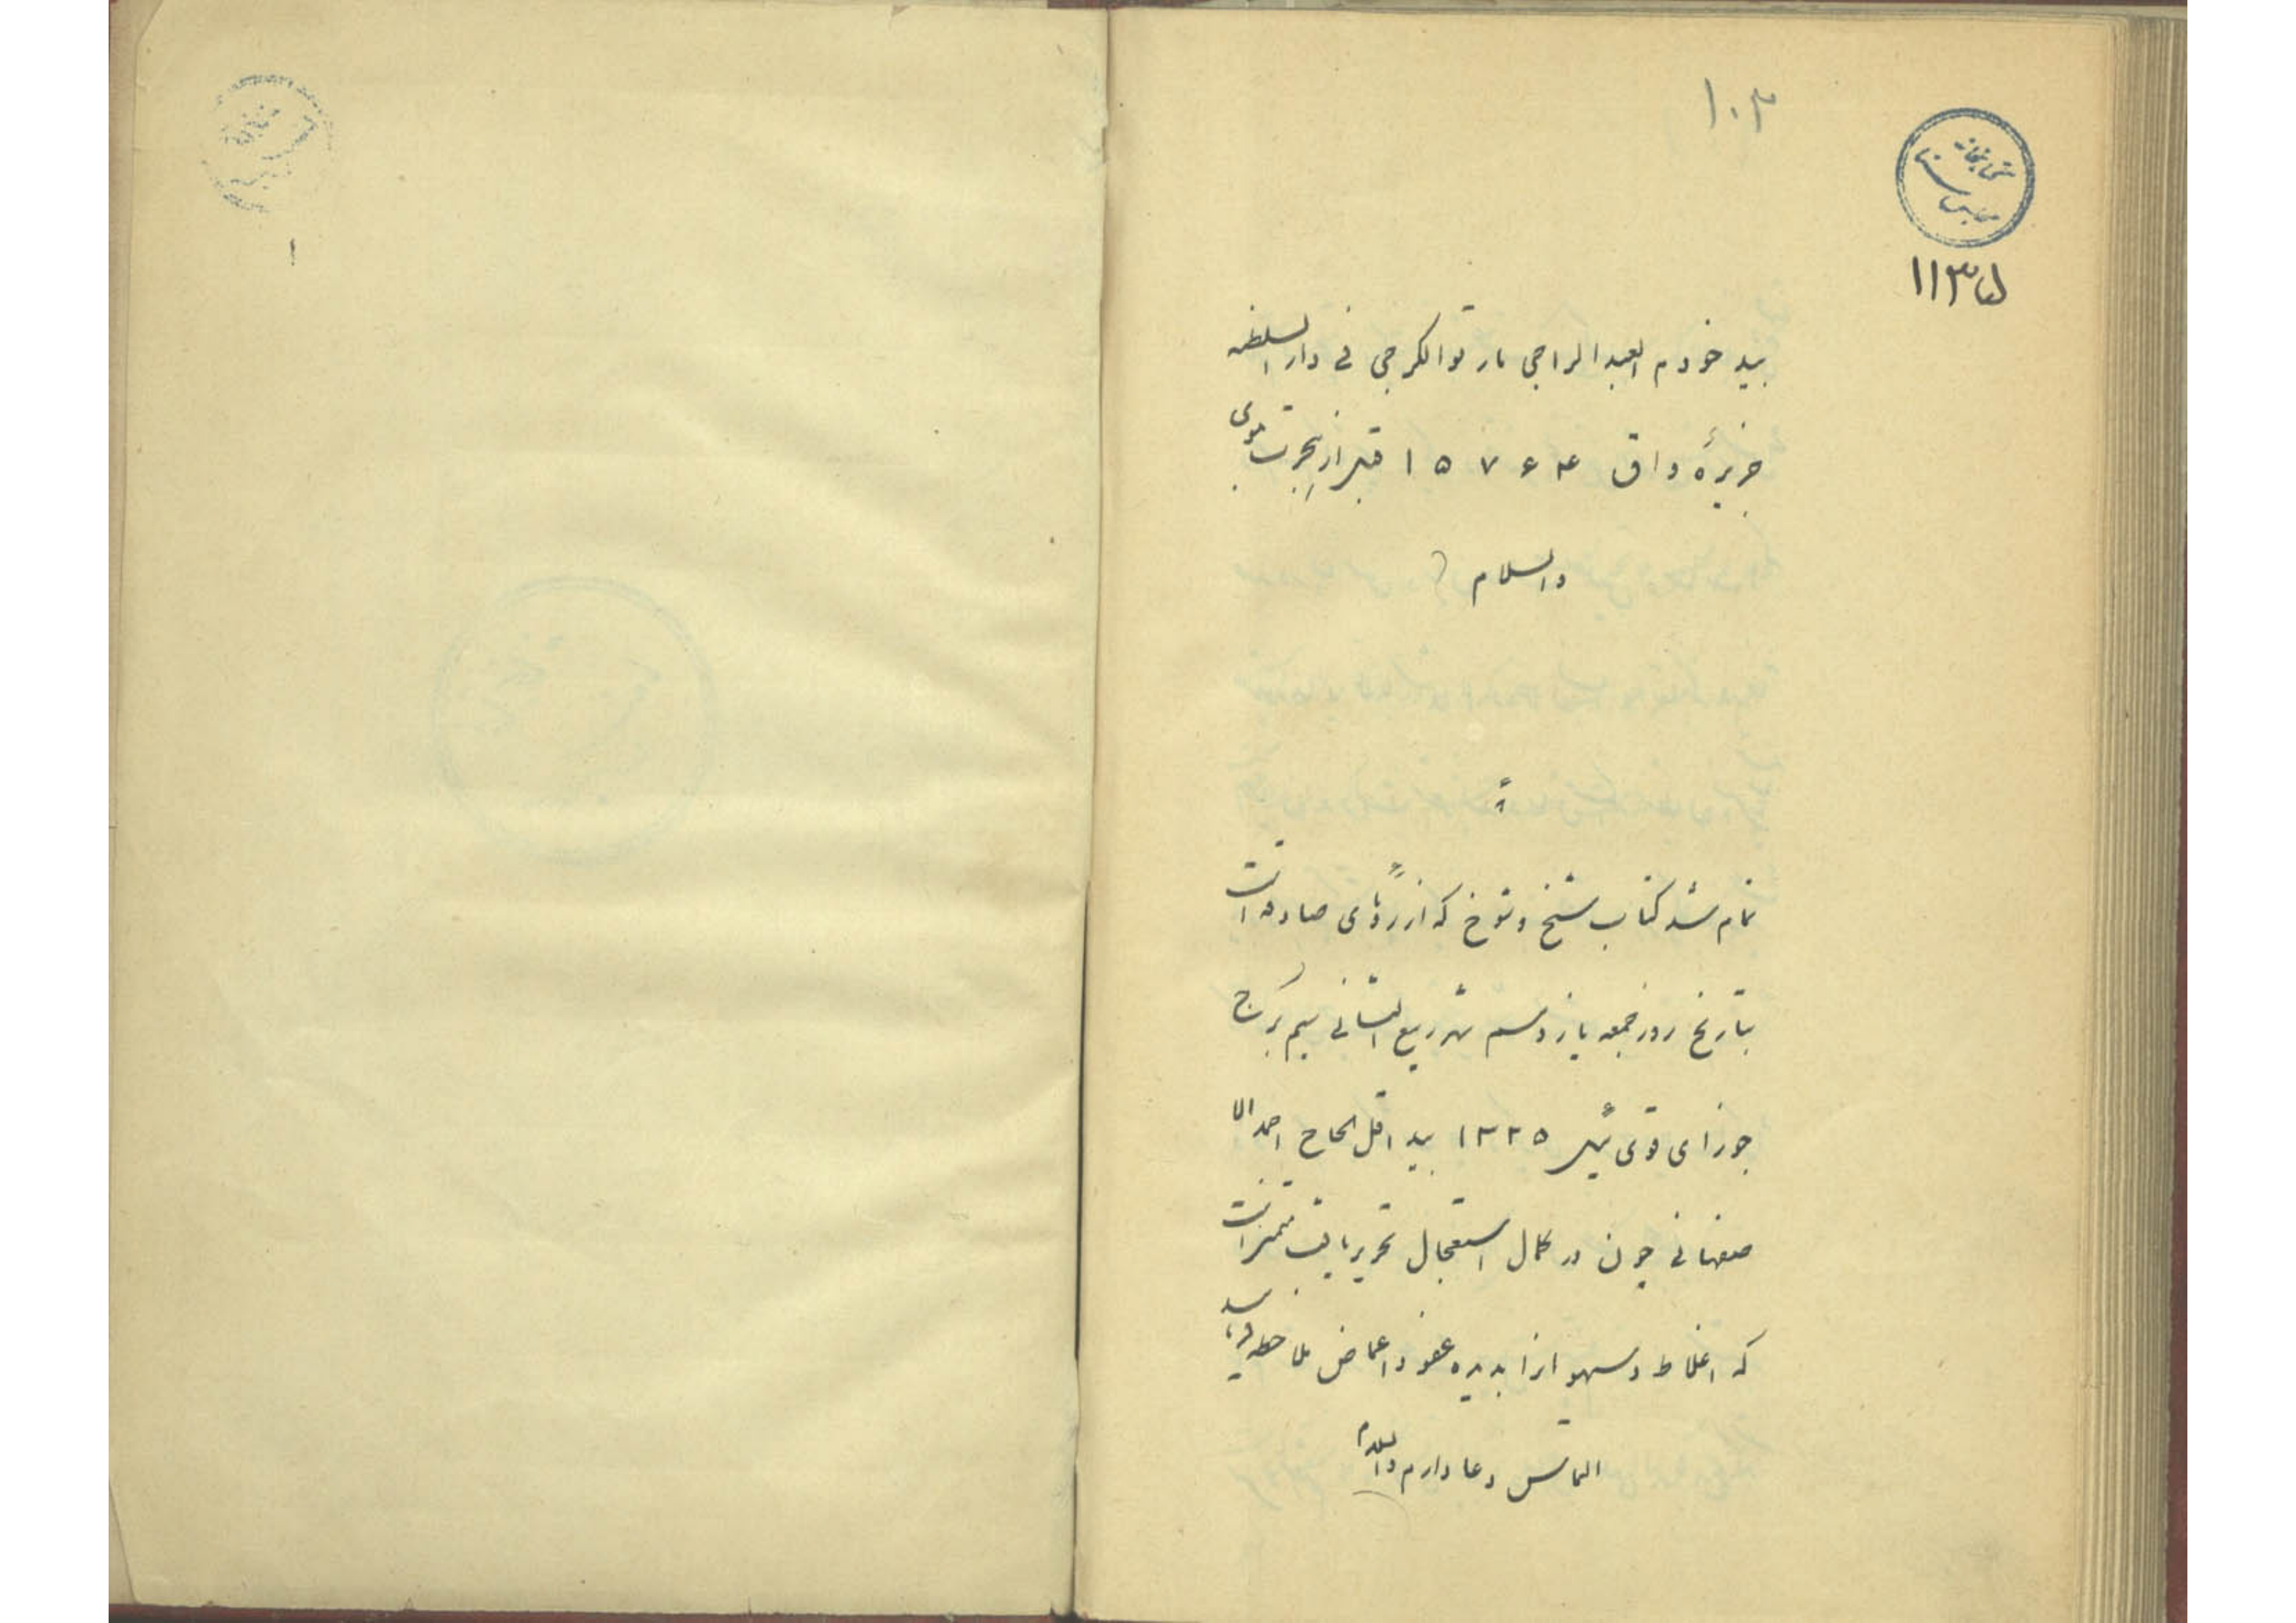 ۱۰۳
کتابخانه
مجلس سنا
۱۱۳۵
بید خودم العبد الراجی مارقوالکرجی فی دار السلطنه
جزیرهٔ واق ۱۵۷۶۴ قبل از هجرت
والسلام
تمام شد کتاب شیخ و شوخ که از رؤیای صادقه است
بتاریخ روز جمعه یازدهم شهر ربیع الثانی سیم برج
جوزای قوی ئیل ۱۳۲۵ بید اقل الحاج احمد الا
صفهانی چون در کمال استعجال تحریر یافت متمنی است
که اغلاط و سهو انرا بدیده عفو و اغماض ملاحظه فرمایند
التماس دعا دارم والسلام